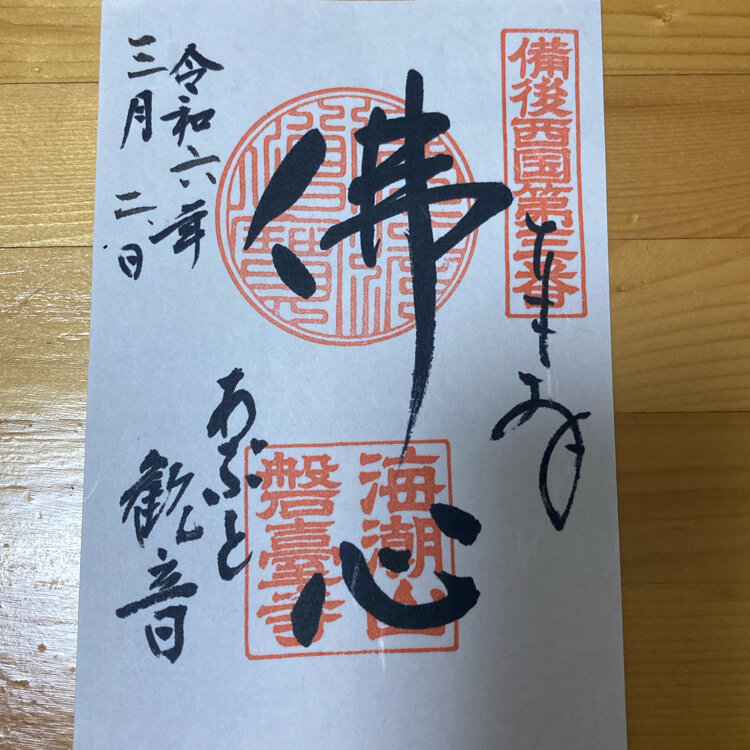 備後西国第三番
奉拝
佛心
海潮山
磐臺寺
あぶと
観音
令和六年
三月二日